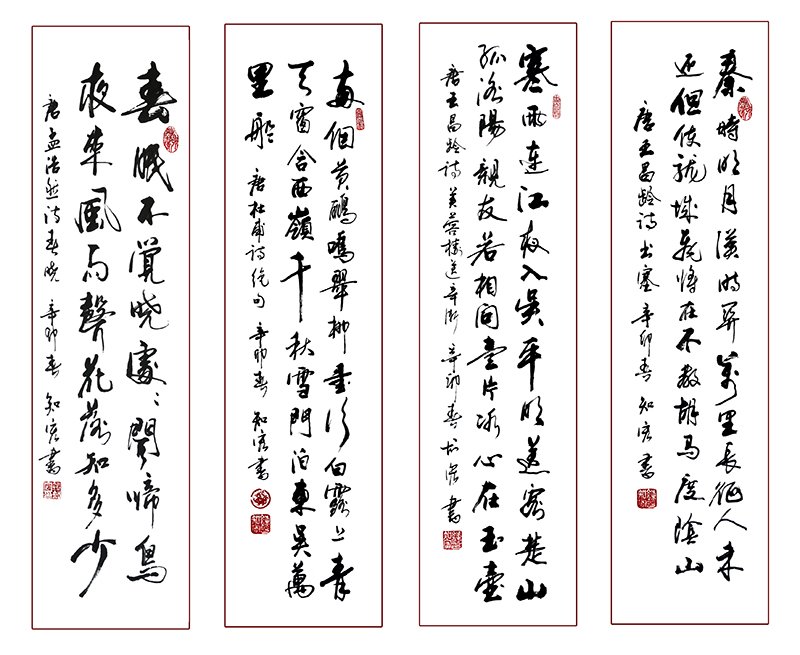 秦時明月漢時関萬里長征人未
还但使龍城飛将在不教胡马度陰山
唐王昌龄诗出塞 辛卯春 知書
寒雨連江夜入吴平明送客楚山
孤洛陽親友若相问壹片冰心在玉壺
唐王昌龄诗芙蓉樓送辛渐 辛卯春 知書
两個黄鸝鳴翠柳壹行白鷺上青
天窗含西嶺千秋雪門泊東吴萬
里船 唐杜甫诗绝句 辛卯春 知書
春眠不覺晓處〻聞啼鳥
夜来風雨聲花落知多少
唐孟浩然诗春晓 辛卯春 知書